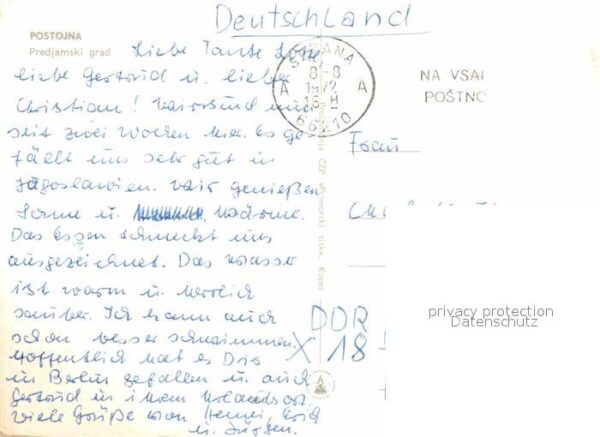 Deutschland
POSTOJNA
Predjamski grad
Liebe Tante
liebe Gertrud u. lieber
Christian! Wir sind nun
seit zwei Wochen hier. Es ge-
fällt uns sehr gut in
Jugoslawien. Wir genießen
Sonne u. Wärme.
Das Essen schmeckt uns
ausgezeichnet. Das Wasser
ist warm u. herrlich
sauber. Ich kann auch
schon besser schwimmen.
Hoffentlich hat es Dir
in Berlin gefallen u. auch
Gertrud in ihrem Urlaubsort.
Viele Grüße von
u. Jürgen.
8-8
1972
A A
66210
NA VSAI
POŠTNO
Frau
DDR
X 18
privacy protection
Datenschutz